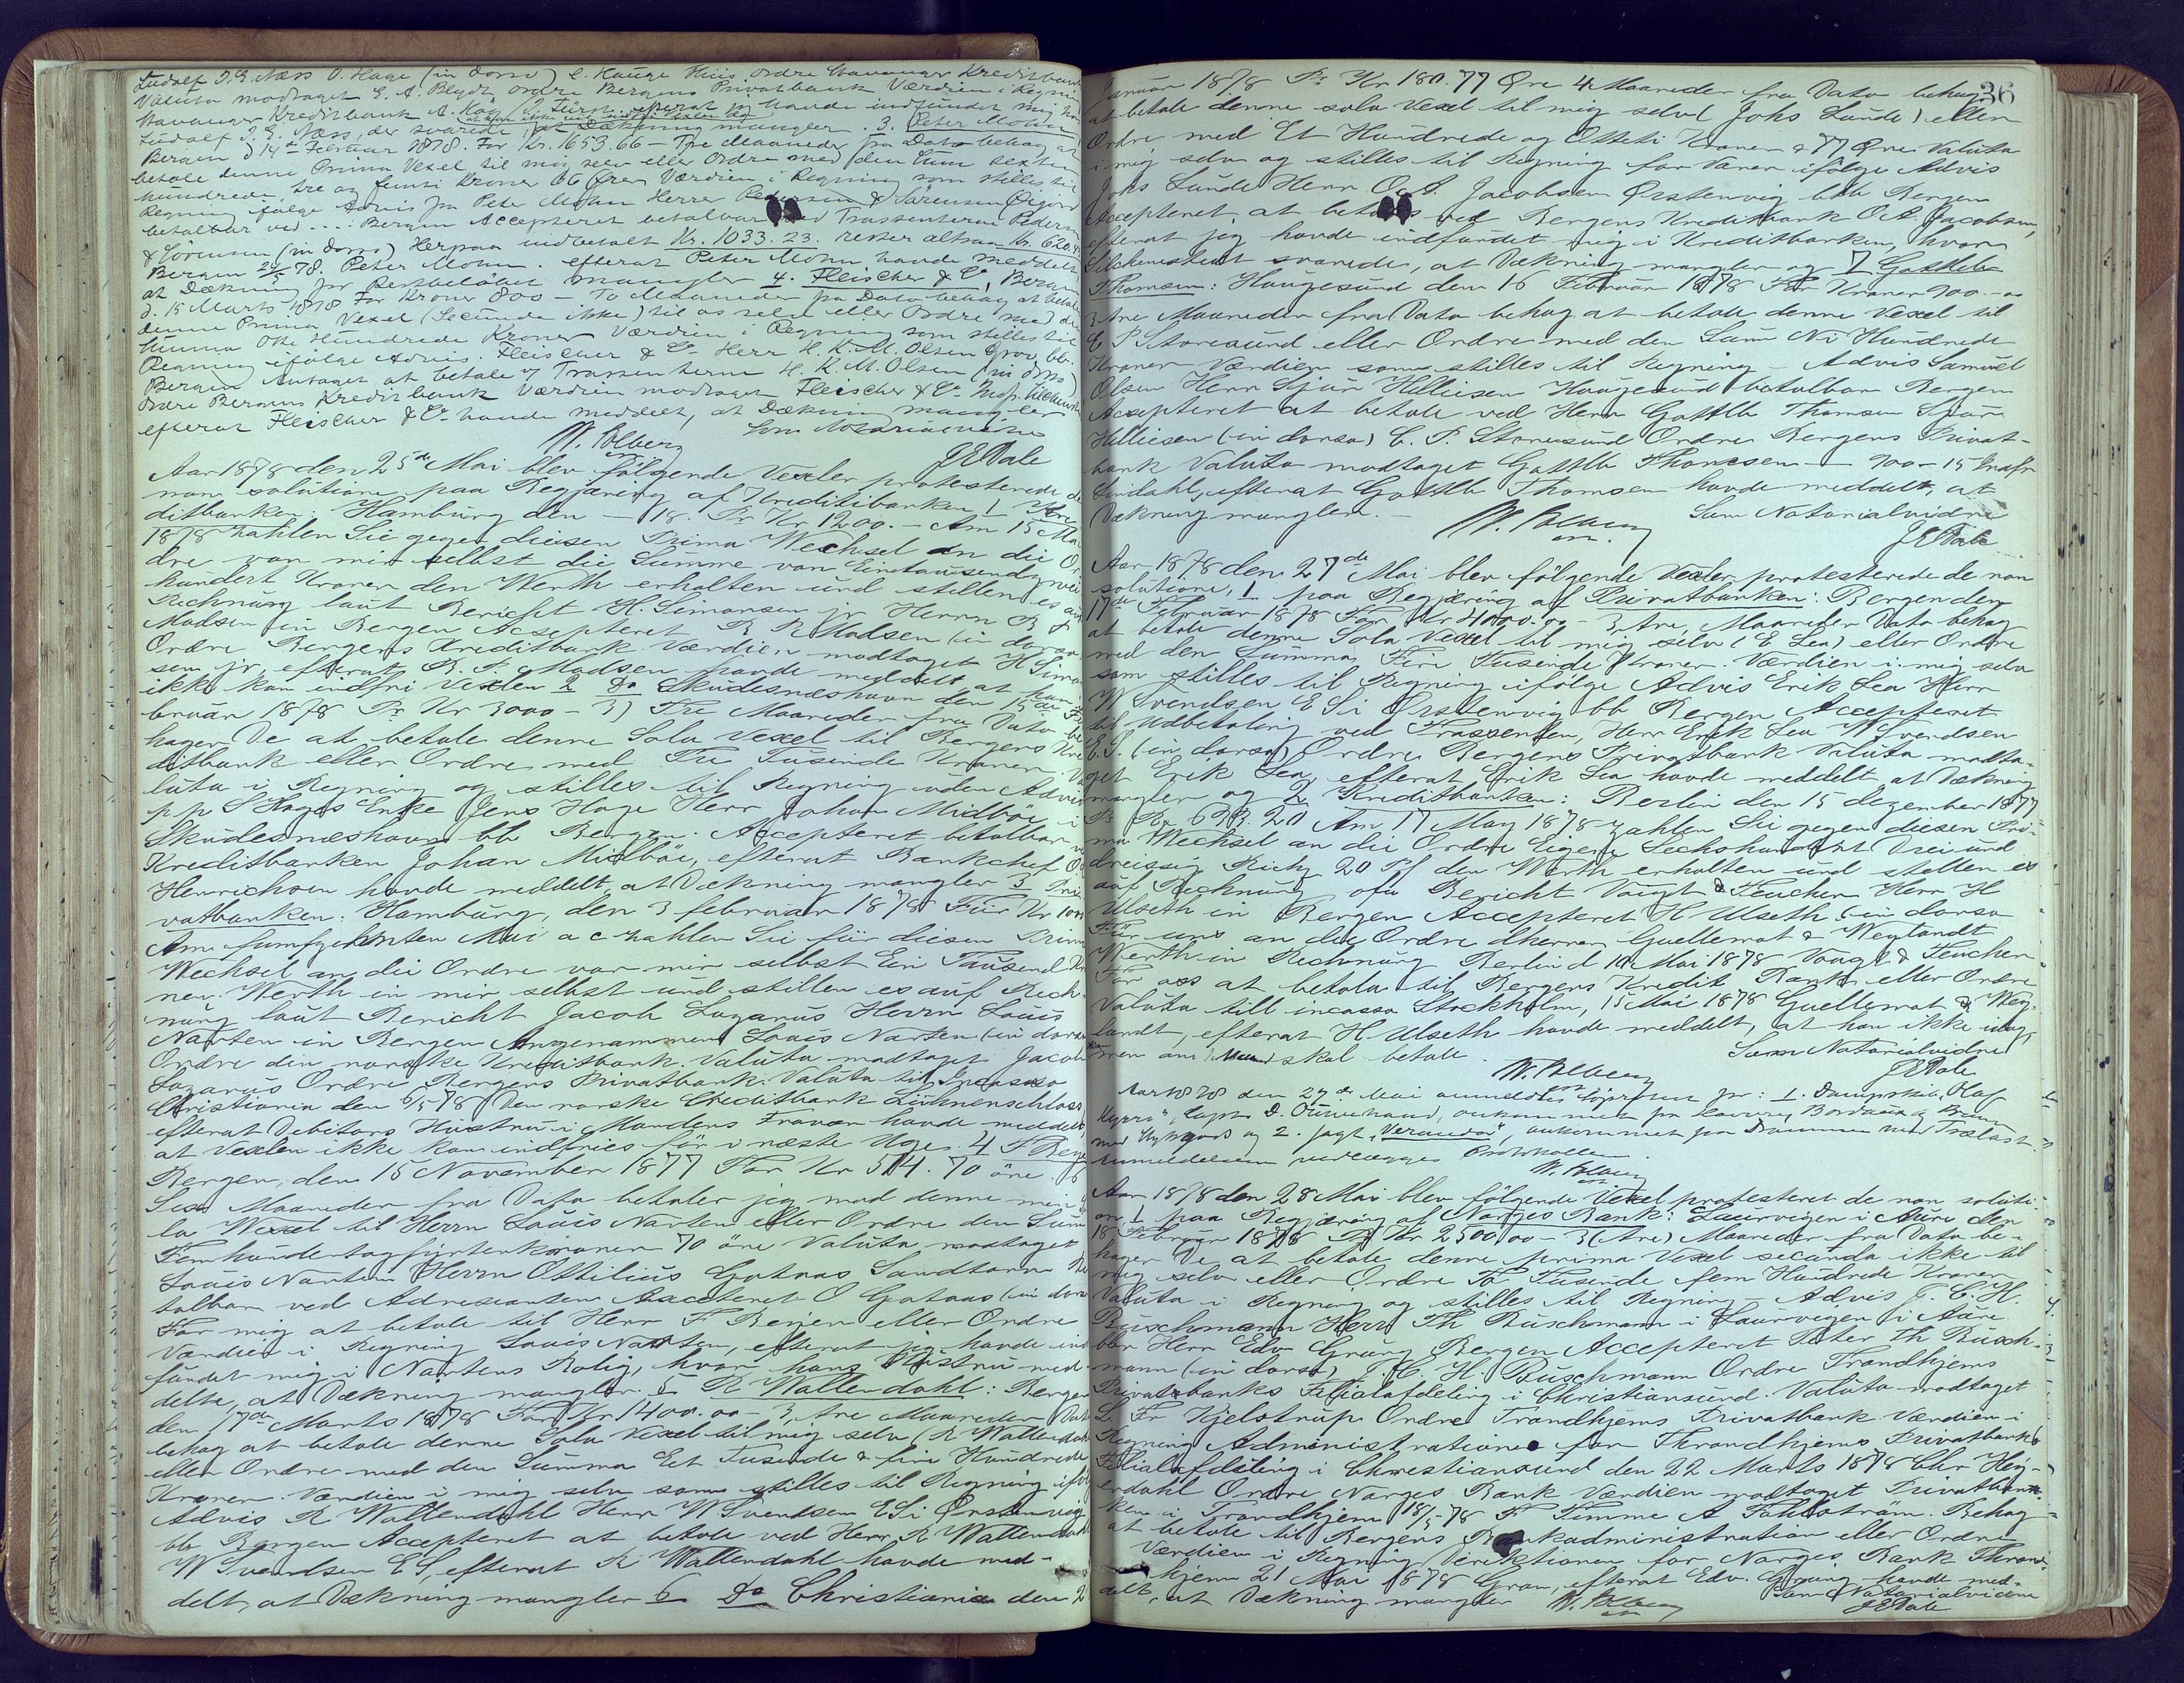 Ludolf I. E. Næss O. Hage (in dorso) C. Hauge Huis. ordre Stavanger Kreditbank
Valuta modtaget E. A. Blydt ordre Bergens Privatbank Værdien i Regni
Stavanger Kreditbank A. Köh efterat jeg havde indfundet mig hos
Ludolf I. E. Næss, der svarede, at Dækning mangler. 3. Peter Mohn
Bergen d 14de Februar 1878. For Kr. 1653.66 – Tre Maaneder fra Dato behag at
betale denne Prima Vexel til mig selv eller Ordre med den Sum sexten
hundrede tre og femti Kroner 66 Öre Værdien i Regning som stilles til
Regning ifölge Advis fra Peter Mohn Herrer Pedersen & Sörensen
betalbar ved .... Bergen Accepteret betalbar ved Trassenterne Pedersen
& Sörensen (in dorso) Herpaa indbetalt Kr. 1033.23. rester altsaa Kr. 620.43
Bergen 24/5 78. Peter Mohn. efterat Peter Mohn havde meddelt
at Dækning for Restbelöbet mangler 4. Fleischer & Co, Bergen
d. 15 Marts 1878 For Kroner 800 – To Maaneder fra Dato behag at betale
denne Prima Vexel (Secunda ikke) til os selv eller Ordre med den
Summa Otte Hundrede Kroner Værdien i Regning som stilles til
Regning ifölge Advis. Fleischer & Co Herr H. K. M. Olsen Grov, bb.
Bergen Antaget at betale hos Trassenterne H. K. M. Olsen (in dorso)
ordre Bergens Kreditbank Værdien modtaget Fleischer & Co
efterat Fleischer & Co havde meddelt, at Dækning mangler
W. Bolberg Som Notarialvidne
J E Dale
Aar 1878 den 25de Mai blev fölgende Vexler protesterede de
non solutione paa Begjæring af Kreditbanken 1 Kre
ditbanken: Hamburg den – 18. Pr Kr 1200. – Am 15 Mai
1878 zahlen Sie gegen diesen Prima Wechsel an die Or
dre von mir selbst die Summe von Eintausendzwei
hundert Kronen den Werth erhalten und stellen es auf
Rechnung laut Bericht H. Simonsen jr Herrn R P
Madsen in Bergen Accepteret R P Madsen (in dorso)
Ordre Bergens Kreditbank Værdien modtaget H Simon
sen jr, efterat R. P. Madsen havde meddelt at han
ikke kan indfri Vexlen 2 Do Skudesnæshavn den 15de Fe
bruar 1878 Pr Kr 3000 – 3) Tre Maaneder fra Dato be
hager De at betale denne Sola Vexel til Bergens Kre
ditbank eller Ordre med Tre Tusende Kroner Va
luta i Regning og stilles til Regning uden Advis
p p S Hages Enke Jens Hage Herr Johan Midböe i
Skudesnæshavn bb Bergen. Accepteret betalbar ved
Kreditbanken Johan Midböe, efterat Bankchef O
Henrichsen havde meddelt, at Dækning mangler 3 Pri
vatbanken: Hamburg, den 3 februar 1878 Für Kr 1000
Am fumfzehnten Mai a c zahlen Sie für diesen Prima
Wechsel an die Ordre von mir selbst Ein Tausend Kro
nen. Werth in mir selbst und stillen es auf Rech
nung laut Bericht Jacob Lazarus Herrn Louis
Narten in Bergen Angenammen Louis Narten (in dorso
Ordre den norske Kreditbank. Valuta modtaget Jacob
Lazarus Ordre Bergens Privatbank. Valuta til Incasso
Christiania den 6/5 78 Den norske Creditbank
efterat Debitors Hustru i Mandens Fravær havde meddelt
at Vexlen ikke kan indfries för i næste Uge. 4 F Beyer
Bergen, den 15 November 1877 For Kr 514.70 öre.
Sex Maaneder fra Dato betaler jeg mod denne min So
la Wexel til Herrn Louis Narten eller Ordre den Sum
Femhundertogfjortenkroner 70 öre Valuta modtaget
Louis Narten Herrn Ottilius Gataas Sandtorv be
talbar ved Adresianten Accepteret O Gataas (in dorso
For mig at betale til Herr F Beyer eller Ordre
Værdien i Regning Louis Narten, efterat jeg havde ind
fundet mig i Nartens Bolig, hvor hans Hustru med
delte, at Dækning mangler. 5 R Wallendahl: Bergen
den 17de Marts 1878 For Kr 1400.00 – 3, tre Maaneder Dato
behag at betale denne Sola Vexel til mig selv (R Wallendahl
eller Ordre med den Summa Et Tusende & fire Hundrede
Kroner. Værdien i mig selv som stilles til Regning ifölge
Advis R Wallendahl Herr W Svendsen E Si Örstenvig
bb Bergen Accepteret at betale ved Herr R Wallendahl
W Svendsen E S, efterat R Wallendahl havde med-
delt, at Dækning mangler 6 Do Christiania den 2
36
Januar 1878 Pr Kr 180.77 Öre 4 Maaneder fra Dato behag
at betale denne sola Vexel til mig selv (Johs Lunde) eller
Ordre med Et Hundrede og Otteti Kroner & 77 Öre. Valuta
i mig selv og stilles til Regning for Varer ifölge Advis
Johs Lunde Herr O. A. Jacobsen Örstenvig bb Bergen
Accepteret, at betales ved Bergens Kreditbank O. A. Jacobsen,
efterat jeg havde indfundet mig i Kreditbanken, hvor
svarede, at Dækning mangler og 7 Gottlieb
Thomsen: Haugesund den 16 Februar 1878 For Kroner 900.00
3 tre Maaneder fra Dato behag at betale denne Vexel til
C P Storesund eller Ordre med den Sum Ni Hundrede
Kroner Værdien som stilles til Regning – Advis Samuel
Olsen Herr Sjur Hilliesen Haugesund betalbar Bergen
Accepteret at betale ved Herr Gottlb Thomsen Sjur
Hilliesen (in dorso) C. P. Storesund Ordre Bergens Privat-
bank Valuta modtaget Gottlb Thomsen – 900 – 15
Lindahl, efterat Gottlb Thomsen havde meddelt, at
Dækning mangler. – W. Bolberg Som Notarialvidne
J E Dale
Aar 1878 den 27de Mai blev fölgende Vexler protesterede de non
solutione, 1 paa Begjæring af Privatbanken: Bergen den
17de Februar 1878 For Kr 4000.00 – 3, tre, Maaneder Dato behag
at betale denne Sola Vexel til mig selv (E Lea) eller Ordre
med den Summa Fire Tusende Kroner. Værdien i mig selv
som stilles til Regning ifölge Advis Erik Lea Herr
W Svendsen E Si Örstenvig bb Bergen Accepteret
til Udbetaling ved Trassenten, Herr Erik Lea W Svendsen
E. S. (in dorso) Ordre Bergens Privatbank Valuta modta-
get Erik Lea, efterat Erik Lea havde meddelt, at Dækning
mangler og 2 Kreditbanken: Berlin den 15 dezember 1877
Pr 633.20 Am 17 May 1878 zahlen Sie gegen diesen Pri-
ma Wechsel an die Ordre Eigene Sechshundert Drei und
dreissig Reich 20 Pf den Werth erhalten und stellen es
auf Rechnung ohn Bericht Voigt & Teucher Herr H
Ulseth in Bergen Accepteret H Ulseth (in dorso
Für uns an die Ordre dherren Guellerrat & Weylandt
Werth in Rechnung Berlin d 10 Mai 1878 Voigt & Teucher
För oss at betala til Bergens Kredit Bank eller Ordre
Valuta till incasso Stockholm, 15 Mai 1878 Guellerrat & Wey
landt, efterat H Ulseth havde meddelt, at han ikke idag,
men om skal betale. Som Notarialvidne
W. Bolberg J E Dale
Aar 1878 den 27de Mai anmeldtes Söprotest for: 1. Dampskib, Olaf
Kyrre", Capt. D. , ankommet fra Bordeaux og
med Stykgods og 2. Jagt "Veranda", ankommet fra Drammen med Trælast.
Anmeldelserne vedlægges Protokollen.
W. Bolberg
Aar 1878 den 28 Mai blev fölgende Vexel protesteret de non soluti-
one 1 paa Begjæring af Norges Bank: Laurvigen i Aure den
18 Februar 1878 Pr Kr 2500.00 – 3 (tre) Maaneder fra Dato be-
hager De at betale denne prima Vexel secunda ikke til
mig selv eller Ordre To Tusende fem Hundrede Kroner
Valuta i Regning og stilles til Regning – Advis J. C. H.
Buschmann Herr Th Buschmann i Laurvigen i Aure
bbr Herr Edv Grung Bergen Accepteret Peter Th Busch-
mann (in dorso) J. C. H. Buschmann Ordre Trondhjems
Privatbanks Filialafdeling i Christiansund. Valuta modtaget
L. Fr Kjelstrup Ordre Trondhjems Privatbank Værdien i
Regning Administrationen for Throndhjems Privatbanks
Filialafdeling i Christiansund den 22 Marts 1878 Chr Hey-
erdahl Ordre Norges Bank Værdien modtaget Privatban-
ken i Trondhjem 18/5 78 F Timme A Fahlström. Behag
at betale til Bergens Bankadministration eller Ordre
Værdien i Regning Direktionen for Norges Bank Thrond-
hjem 21 Mai 1878 Gran, efterat Edv. Grung havde med-
delt, at Dækning mangler W. Bolberg Som Notarialvidne
J E Dale